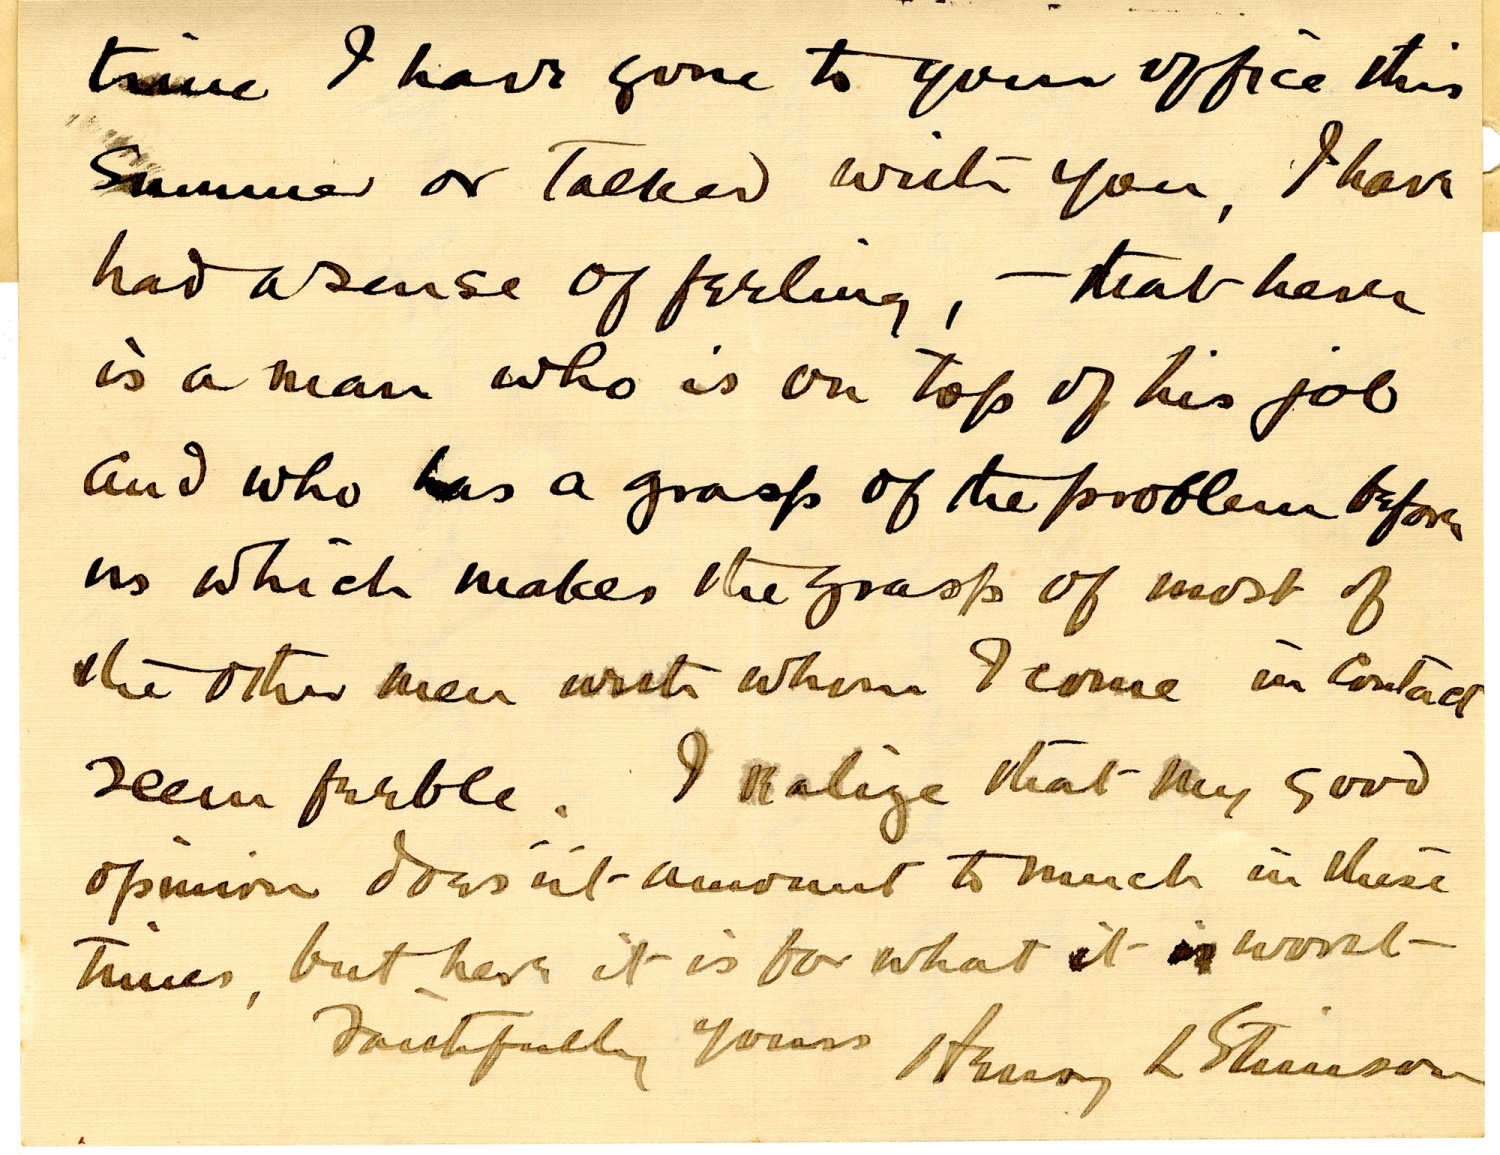 time I have gone to your office this
summer or talked with you, I have
had a sense of feeling, — that here
is a man who is on top of his job
and who has a grasp of the problem before
us which makes the grasp of most of
the other men with whom I come in contact
seem feeble. I realize that my good
opinion does'nt amount to much in these
times, but here it is for what it is worth
Faithfully yours Henry L Stimson